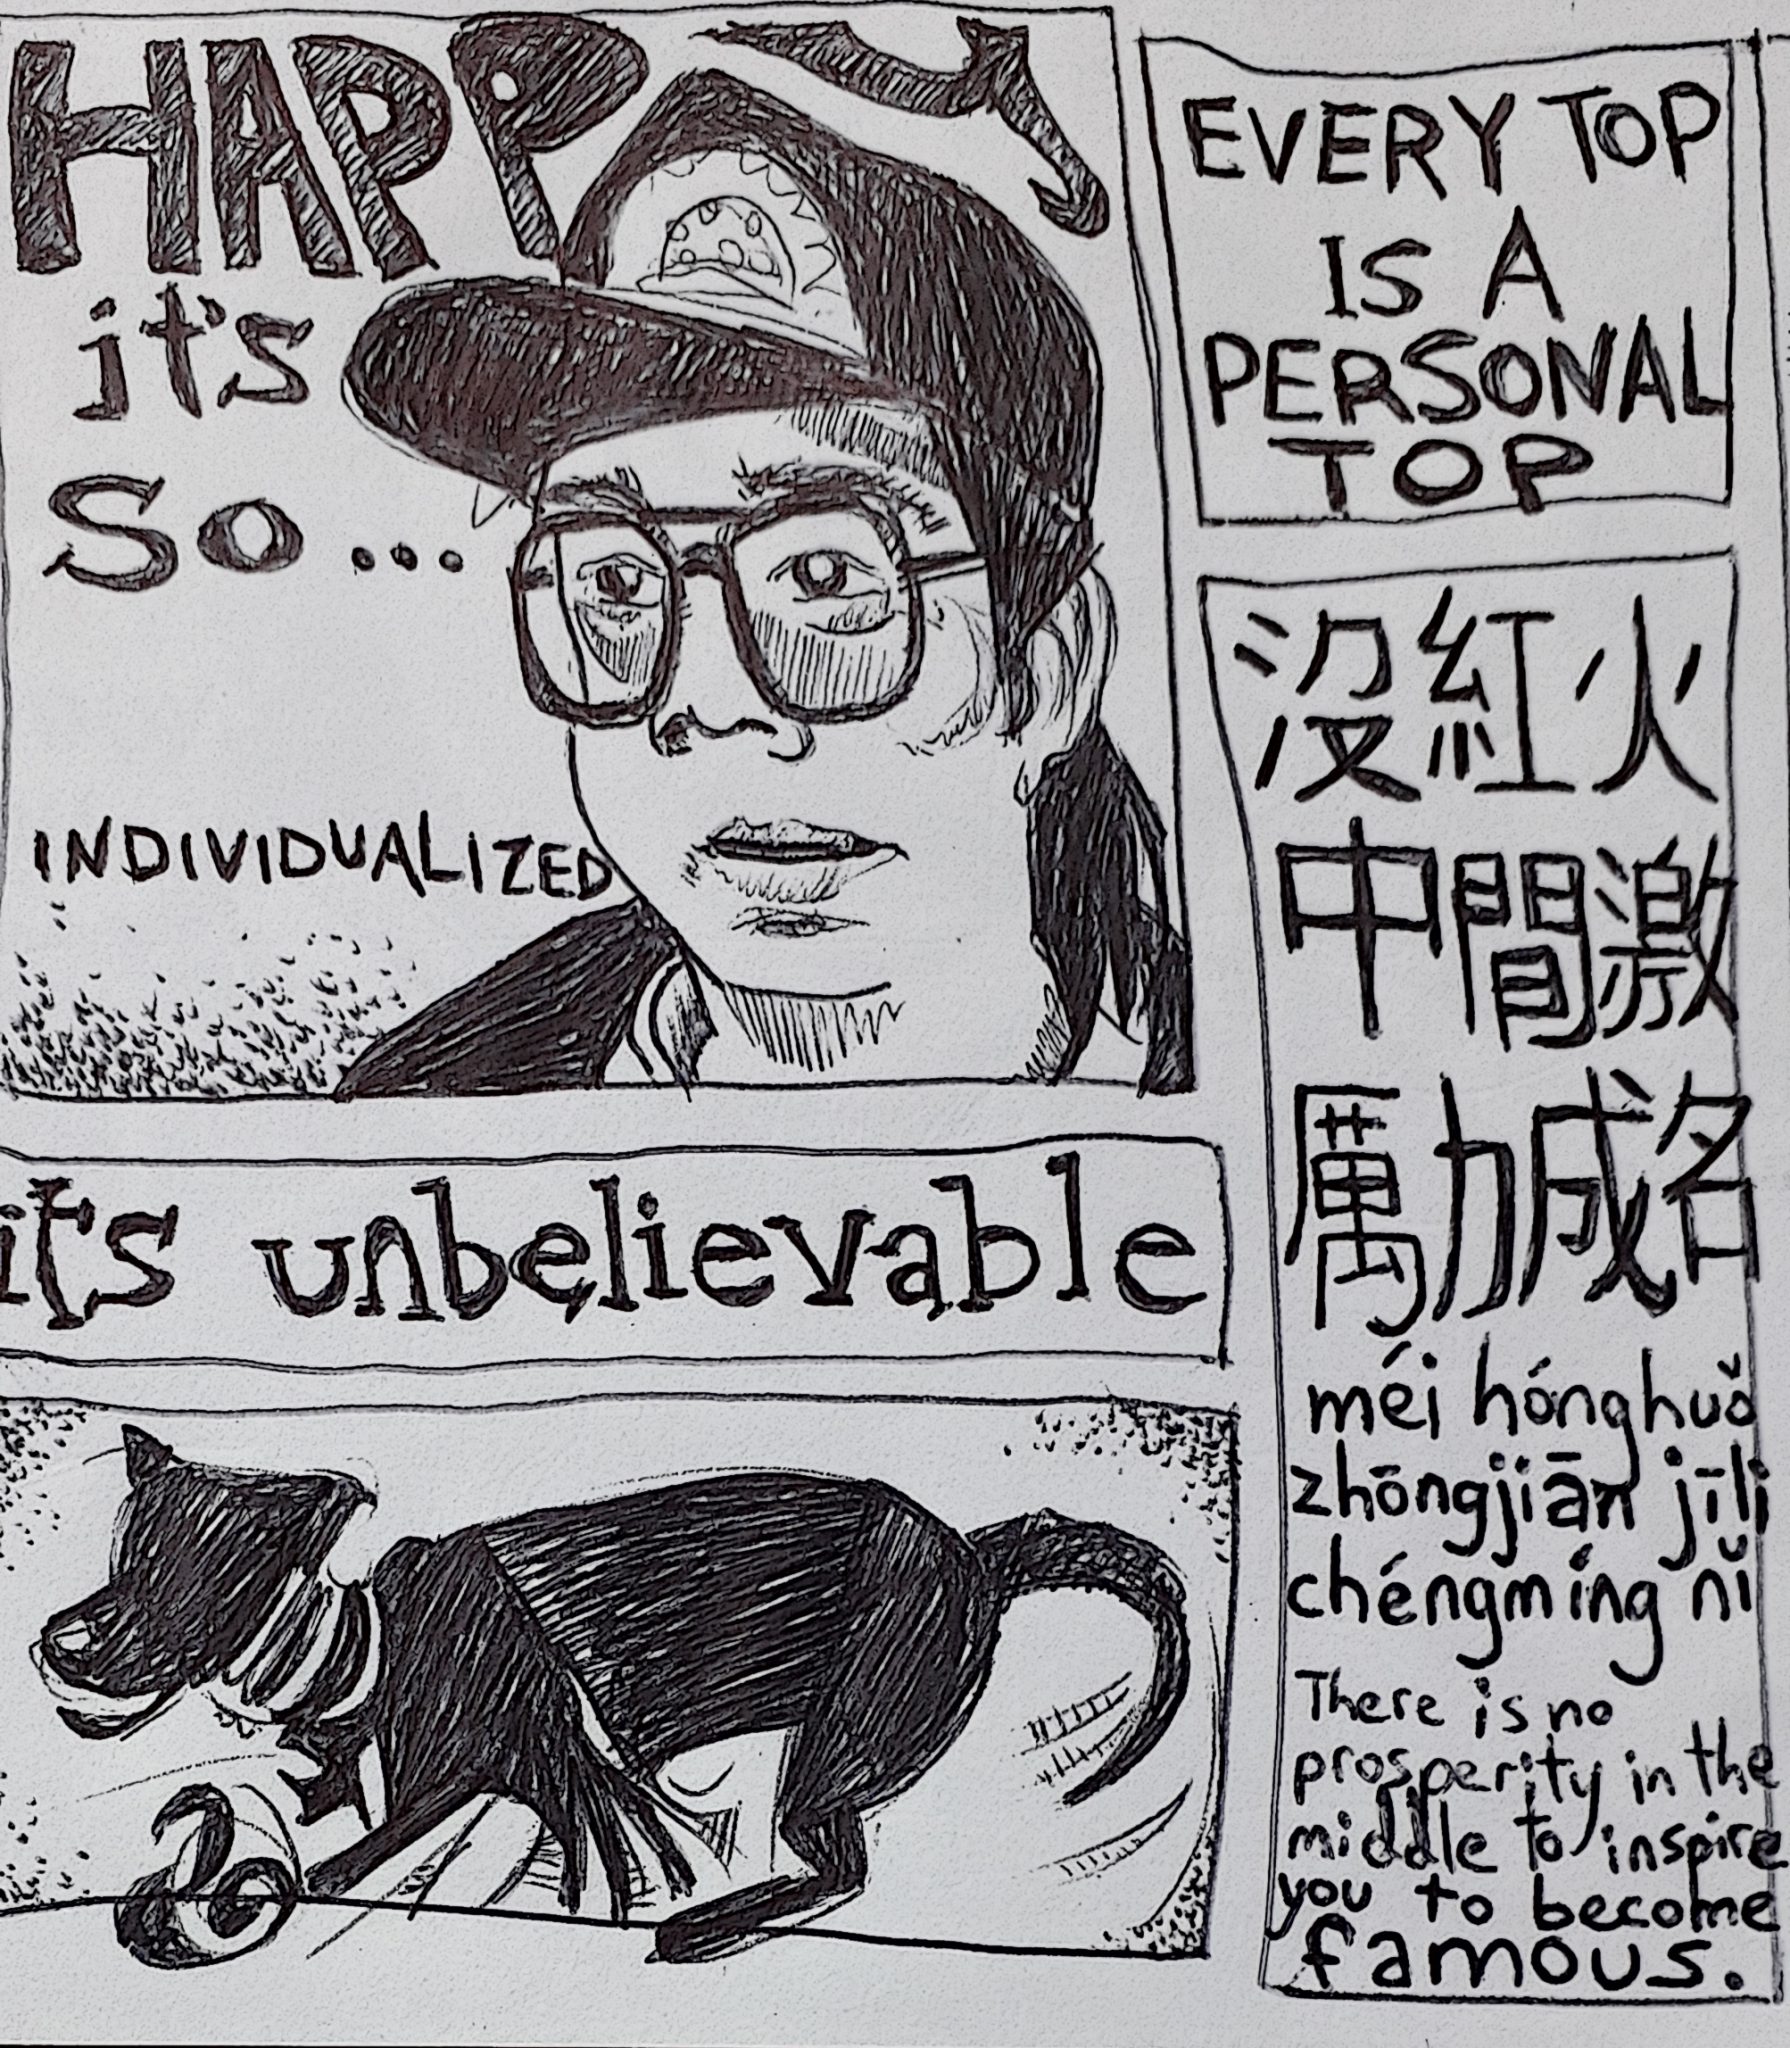 HAPPY
it's
So...
INDIVIDUALIZED
it's unbelievable
EVERY TOP
IS A
PERSONAL
TOP
沒紅火
中間激
勵成名
méi hónghuǒ
zhōngjiān jīli
chéngmíng nǐ
There is no
prosperity in the
middle to inspire
you to become
famous.